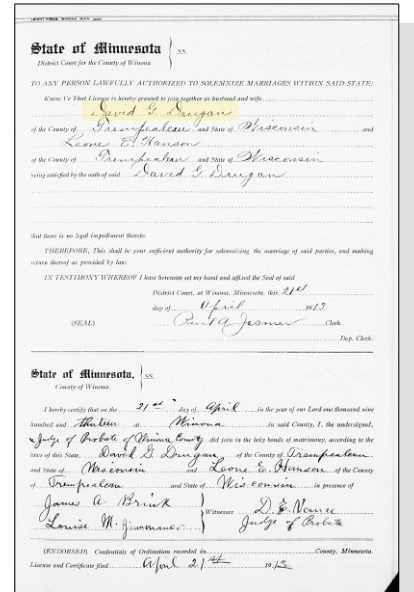 State of Minnesota } ss.
District Court for the County of Winona.
TO ANY PERSON LAWFULLY AUTHORIZED TO SOLEMNIZE MARRIAGES WITHIN SAID STATE:
Know Ye That License is hereby granted to join together as husband and wife
David G. Drugan
of the County of Trempealeau and State of Wisconsin and
Leone E. Hanson
of the County of Trempealeau and State of Wisconsin
being satisfied by the oath of said David G Drugan
that there is no legal impediment thereto.
THEREFORE, This shall be your sufficient authority for solemnizing the marriage of said parties, and making
return thereof as provided by law.
IN TESTIMONY WHEREOF I have hereunto set my hand and affixed the Seal of said
District Court, at Winona, Minnesota, this 21st
day of April 1913
(SEAL) Paul A Jesmer Clerk.
Dep. Clerk.
State of Minnesota, } ss.
County of Winona.
I hereby certify that on the 21st day of April in the year of our Lord one thousand nine
hundred and thirteen at Winona in said County, I, the undersigned,
a Judge of Probate of Winona County did join in the holy bonds of matrimony, according to the
laws of this State, David G Drugan, of the County of Trempealeau
and State of Wisconsin and Leone E. Hanson of the County
of Trempealeau and State of Wisconsin in presence of
James A Brink
Witnesses D. E. Vance
Louise M. Judge of Probate
(ENDORSED) Credentials of Ordination recorded in County, Minnesota.
License and Certificate filed April 21st 1913